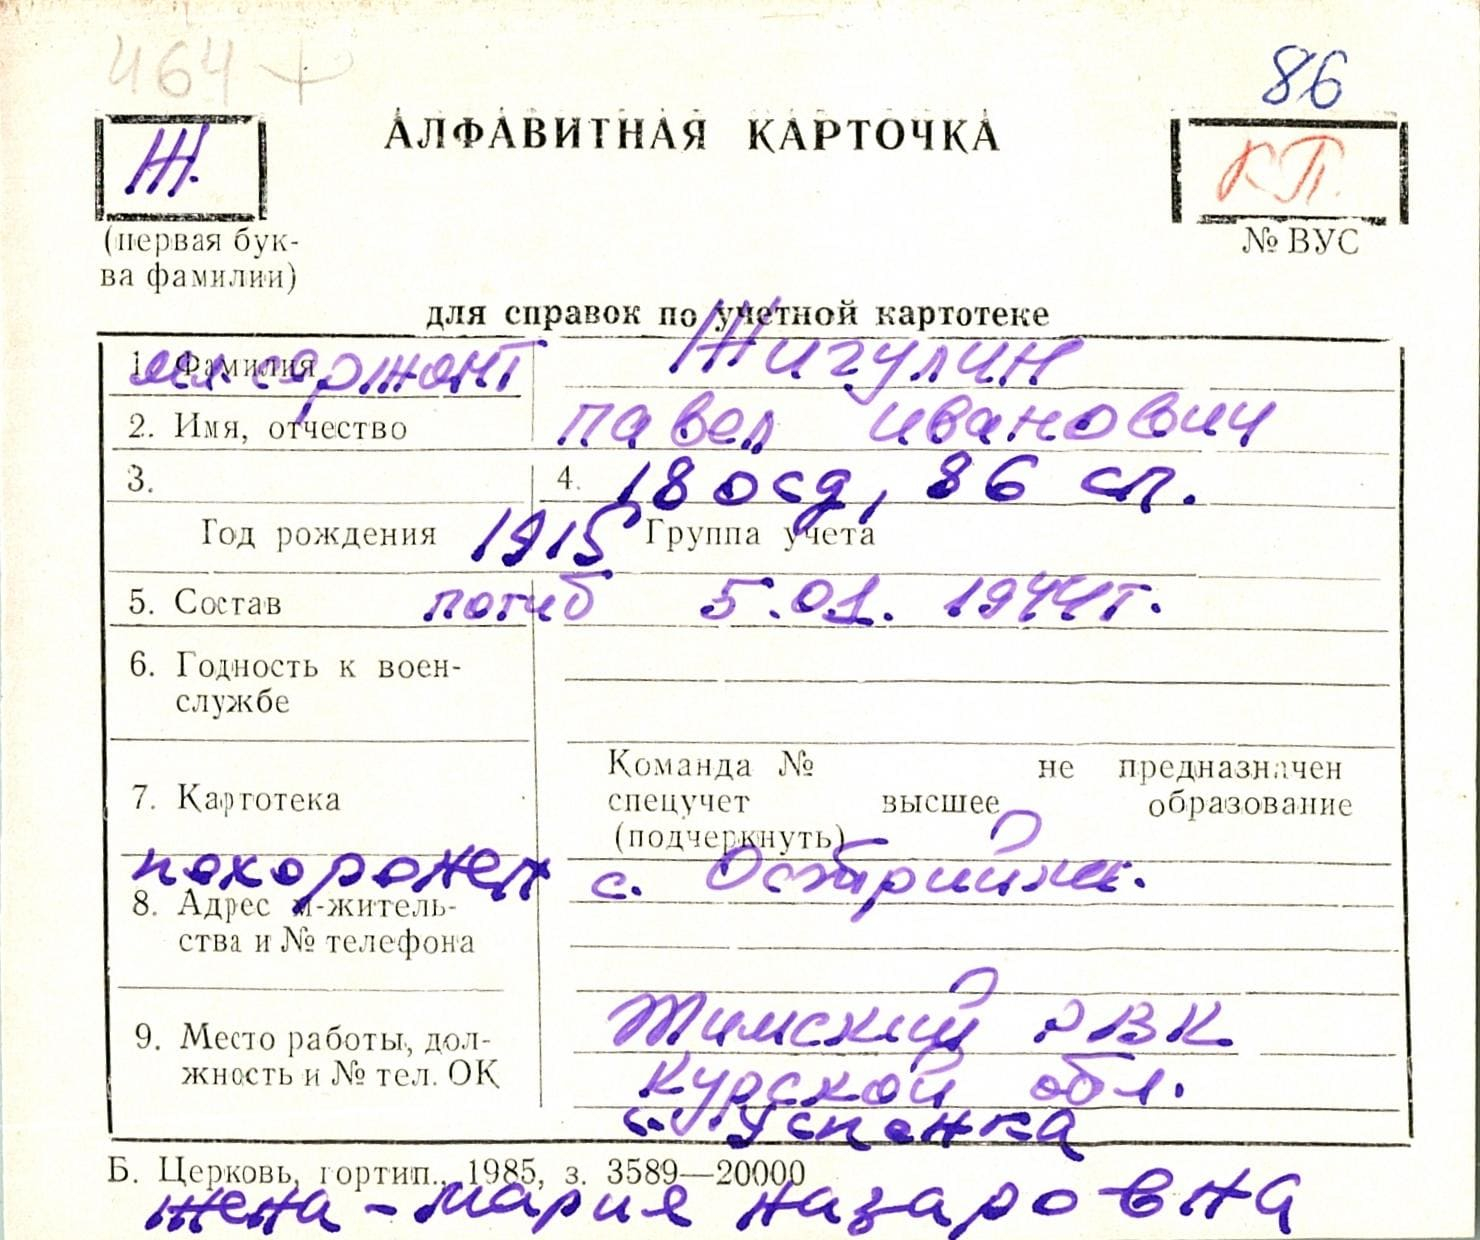 464 +
86
Ж.
АЛФАВИТНАЯ КАРТОЧКА
КП.
(первая бук-
ва фамилии)
№ ВУС
для справок по учетной картотеке
1. Фамилия
мл сержант Жигулин
2. Имя, отчество павел иванович
3. 4. 18 осд, 86 сп.
Год рождения 1915 Группа учета
5. Состав погиб 5.01.1944г.
6. Годность к воен-
службе
7. Картотека
Команда № не предназначен
спецучет высшее образование
(подчеркнуть)
похоронен с. Острийки.
8. Адрес м-житель-
ства и № телефона
9. Место работы, дол-
жность и № тел. ОК
Тимский РВК
Курской обл.
с. Успенка
Б. Церковь, гортип., 1985, з. 3589—20000
жена - мария назаровна